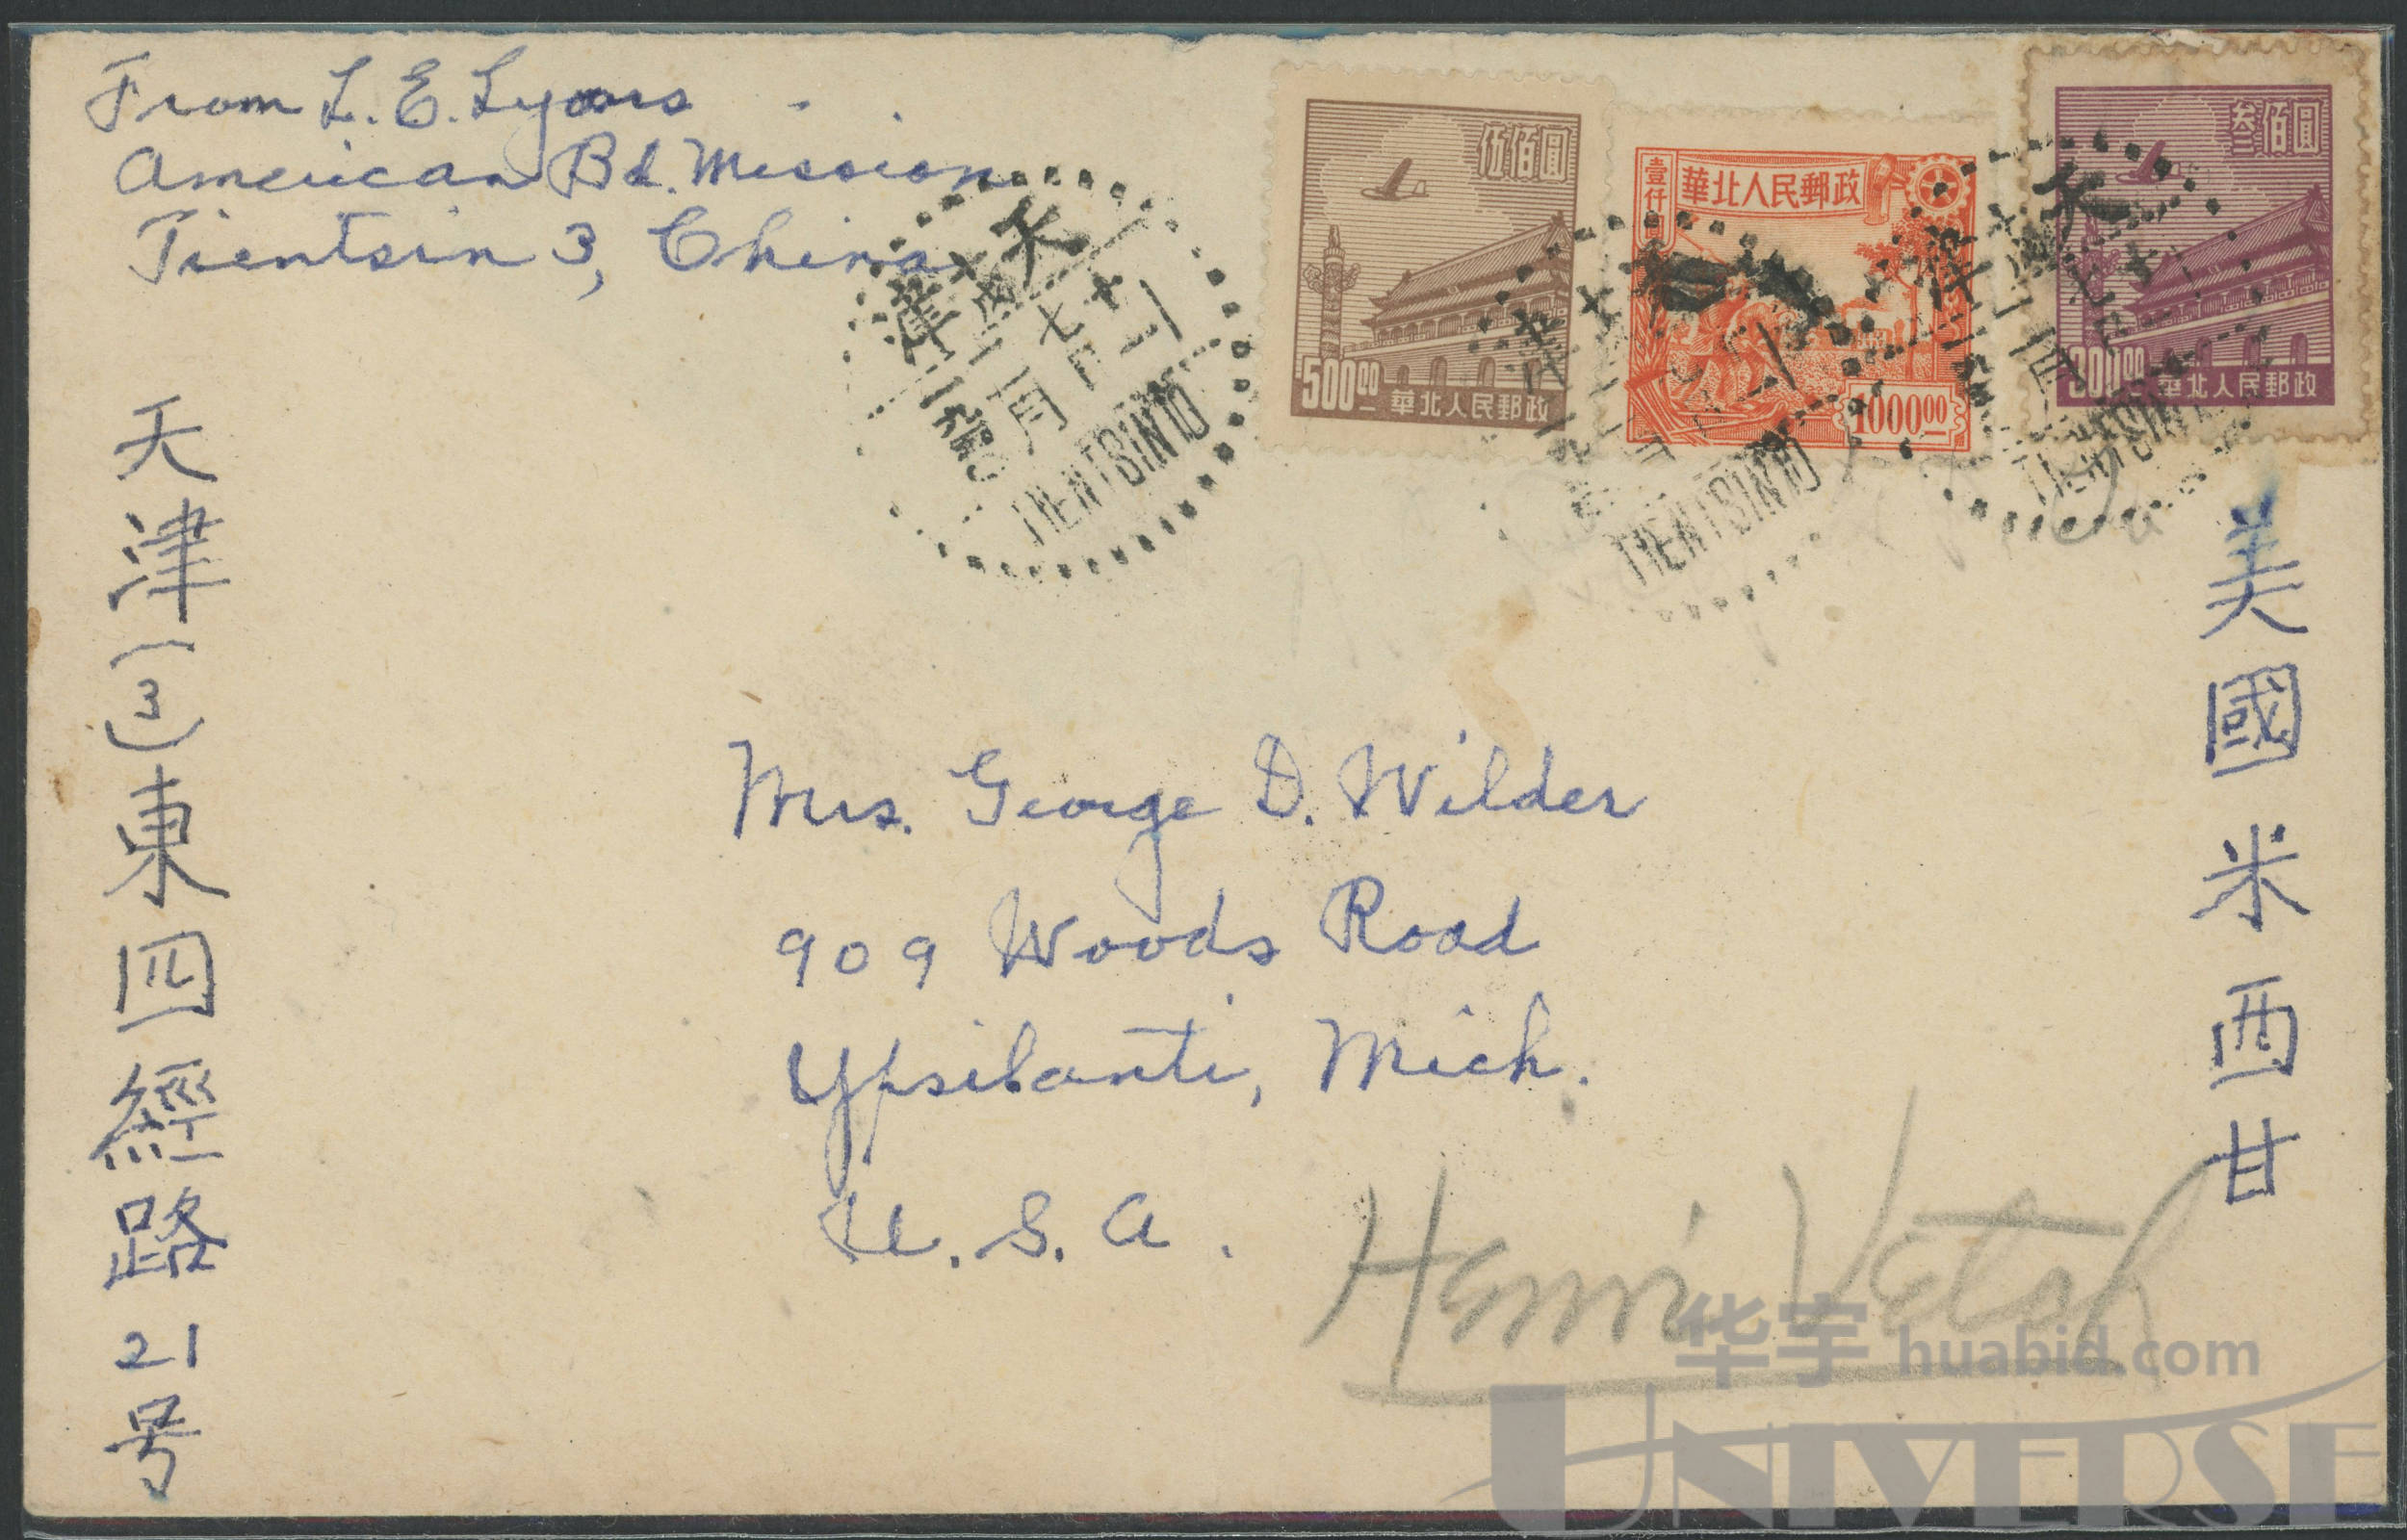 From L. E. Lyons
American Bd. Mission
Tientsin 3, China
伍佰圓
500.00
華北人民郵政
壹仟圓
華北人民郵政
1000.00
叁佰圓
300.00
華北人民郵政
天津
TIENTSIN 10
TIENTSIN 10
天津
TIENTSIN
美國米西甘
天津(3)東四經路21号
Mrs. George D. Wilder
909 Woods Road
Ypsilanti, Mich.
U. S. A.
Henri Vetch
华宇 huabid.com
UNIVERSE